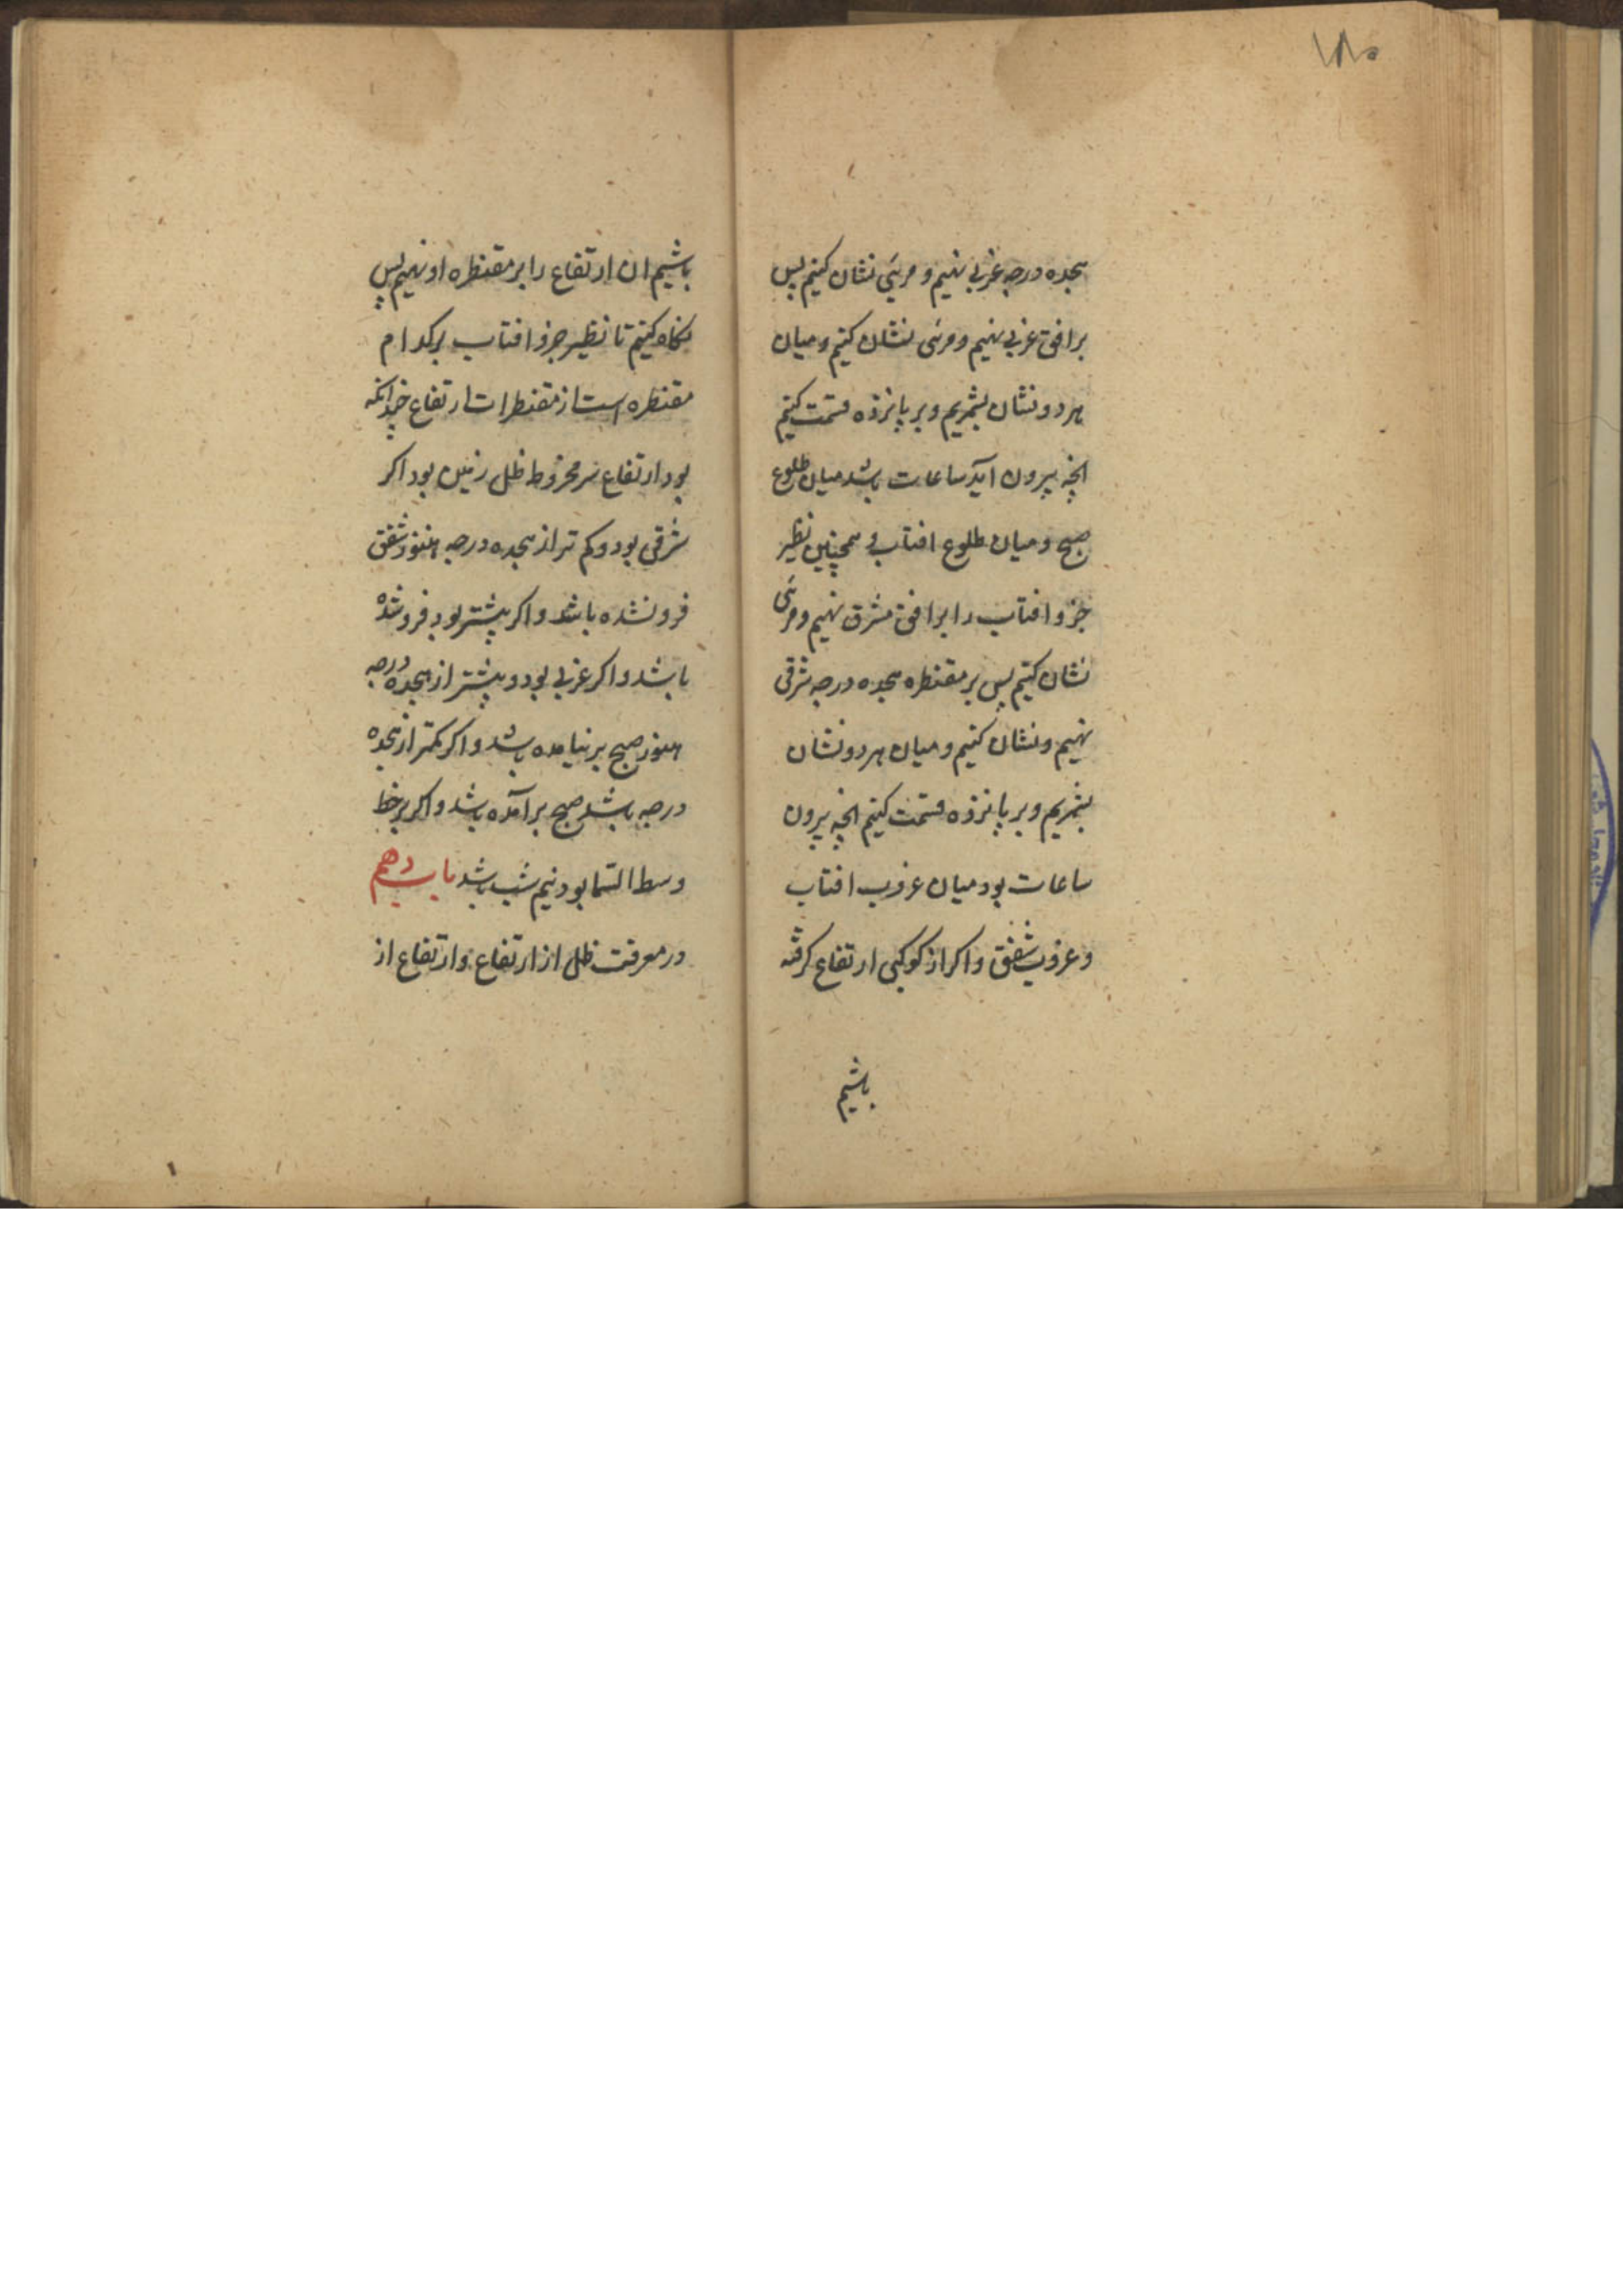 هجده درجه غربی نهیم و مری نشان کنیم پس
بر افق غربی نهیم و مری نشان کنیم و میان
هر دو نشان بشمریم و بر پانزده قسمت کنیم
انچه بیرون آید ساعات باشد میان طلوع
صبح و میان طلوع افتاب و همچنین نظیر
جزو افتاب را بر افق مشرق نهیم و مری
نشان کنیم پس بر مقنطره هجده درجه شرقی
نهیم و نشان کنیم و میان هر دو نشان
بشمریم و بر پانزده قسمت کنیم انچه بیرون
ساعات بود میان غروب افتاب
و غروب شفق و اکر از کوکبی ارتفاع کرفته
باشیم
باشیم ان ارتفاع را بر مقنطره او نهیم پس
نکاه کنیم تا نظیر جزو افتاب بر کدام
مقنطره است از مقنطرات ارتفاع چندانکه
بود ارتفاع سر مخروط ظل زمین بود اکر
شرقی بود و کم تر از هجده درجه هنوز شفق
فرو نشده باشد و اکر بیشتر بود فرو شده
باشد و اکر غربی بود و بیشتر از هجده درجه
هنوز صبح بر نیامده باشد و اکر کمتر از هجده
درجه باشد صبح بر آمده باشد و اکر بر خط
وسط السما بود نیم شب باشد باب دهم
در معرفت ظل از ارتفاع و ارتفاع از